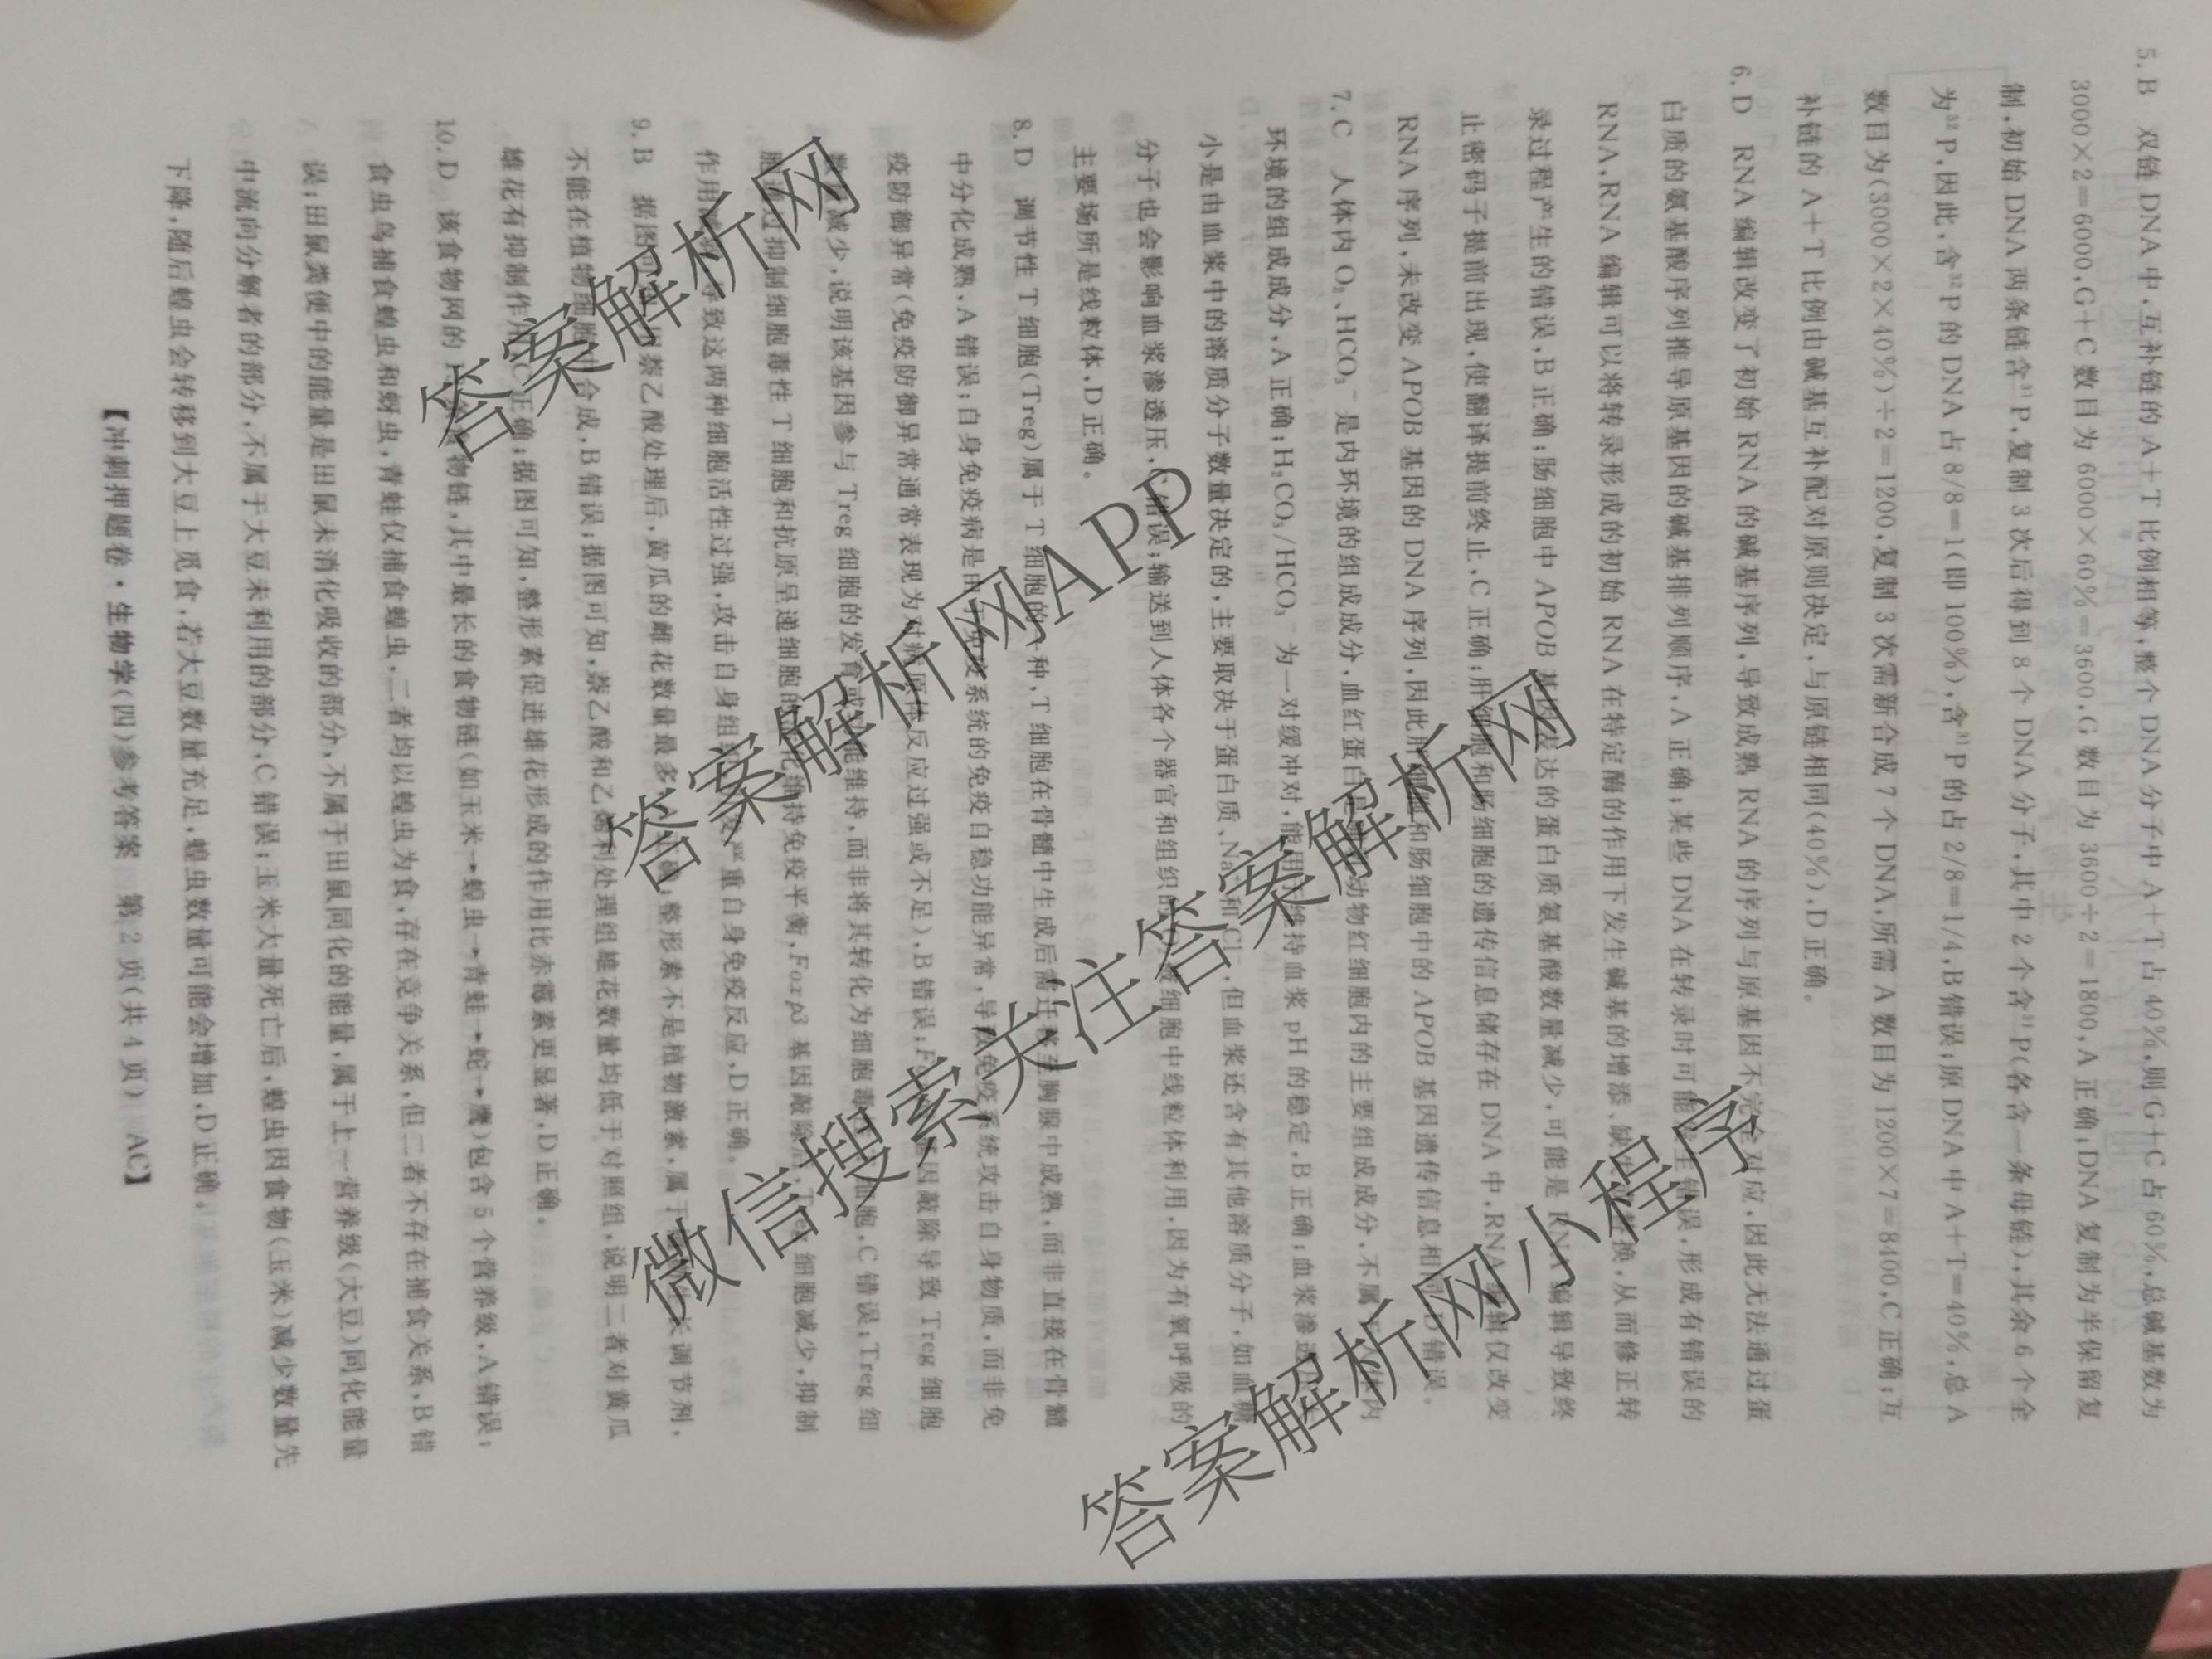 5. B 双链 DNA 中,互补链的 A+T 比例相等,整个 DNA 分子中 A+T 占 40%,则 G+C 占 60%,总碱基数为
3000×2=6000,G+C 数目为 6000×60%=3600,G 数目为 3600÷2=1800,A 正确;DNA 复制为半保留复
制,初始 DNA 两条链含³¹P,复制 3 次后得到 8 个 DNA 分子,其中 2 个含³¹P(各含一条母链),其余 6 个全
为³²P,因此,含³²P 的 DNA 占 8/8=1(即 100%),含³¹P 的占 2/8=1/4,B 错误;原 DNA 中 A+T=40%,总 A
数目为(3000×2×40%)÷2=1200,复制 3 次需新合成 7 个 DNA,所需 A 数目为 1200×7=8400,C 正确;互
补链的 A+T 比例由碱基互补配对原则决定,与原链相同(40%),D 正确。
6. D RNA 编辑改变了初始 RNA 的碱基序列,导致成熟 RNA 的序列与原基因不完全对应,因此无法通过蛋
白质的氨基酸序列推导原基因的碱基排列顺序,A 正确;某些 DNA 在转录时可能 生错误,形成有错误的
RNA,RNA 编辑可以将转录形成的初始 RNA 在特定酶的作用下发生碱基的增添、缺 换,从而修正转
录过程产生的错误,B 正确;肠细胞中 APOB 基因表达的蛋白质氨基酸数量减少,可能是 RNA 编辑导致终
止密码子提前出现,使翻译提前终止,C 正确;肝细胞和肠细胞的遗传信息储存在 DNA 中,RNA 编辑仅改变
RNA 序列,未改变 APOB 基因的 DNA 序列,因此肝细胞和肠细胞中的 APOB 基因遗传信息相同,D 错误。
7. C 人体内 O₂、HCO₃⁻ 是内环境的组成成分,血红蛋白 动物红细胞内的主要组成成分,不属于 内
环境的组成成分,A 正确;H₂CO₃/HCO₃⁻ 为一对缓冲对,能用 维持血浆 pH 的稳定,B 正确;血浆渗透
小是由血浆中的溶质分子数量决定的,主要取决于蛋白质、Na⁺和 Cl⁻,但血浆还含有其他溶质分子,如血糖
分子也会影响血浆渗透压,C 错误;输送到人体各个器官和组织的 细胞中线粒体利用,因为有氧呼吸的
主要场所是线粒体,D 正确。
8. D 调节性 T 细胞(Treg)属于 T 细胞的一种,T 细胞在骨髓中生成后需迁移至胸腺中成熟,而非直接在骨髓
中分化成熟,A 错误;自身免疫病是由于免疫系统的免疫自稳功能异常,导致免疫系统攻击自身物质,而非免
疫防御异常(免疫防御异常通常表现为对病原体反应过强或不足),B 错误; 基因敲除导致 Treg 细胞
数 减少,说明该基因参与 Treg 细胞的发育或功能维持,而非将其转化为细胞毒 细胞,C 错误;Treg 细
胞通过抑制细胞毒性 T 细胞和抗原呈递细胞的 化维持免疫平衡,Foxp3 基因敲除 细胞减少,抑制
作用 导致这两种细胞活性过强,攻击自身组 严重自身免疫反应,D 正确。
9. B 据图可 萘乙酸处理后,黄瓜的雌花数量最多, ;整形素不是植物激素,属于 长调节剂,
不能在植物细胞中合成,B 错误;据图可知,萘乙酸和乙烯利处理组雄花数量均低于对照组,说明二者对黄瓜
雄花有抑制作用,C 正确;据图可知,整形素促进雄花形成的作用比赤霉素更显著,D 正确。
10. D 该食物网的 物链,其中最长的食物链(如玉米→蝗虫→青蛙→蛇→鹰)包含 5 个营养级,A 错误;
食虫鸟捕食蝗虫和蚜虫,青蛙仅捕食蝗虫,二者均以蝗虫为食,存在竞争关系,但二者不存在捕食关系,B 错
误;田鼠粪便中的能量是田鼠未消化吸收的部分,不属于田鼠同化的能量,属于上一营养级(大豆)同化能量
中流向分解者的部分,不属于大豆未利用的部分,C 错误;玉米大量死亡后,蝗虫因食物(玉米)减少数量先
下降,随后蝗虫会转移到大豆上觅食,若大豆数量充足,蝗虫数量可能会增加,D 正确。
【冲刺押题卷·生物学(四)参考答案 第 2 页(共 4 页) AC】
答案解析网
答案解析网APP
微信搜索关注答案解析网
答案解析网小程序